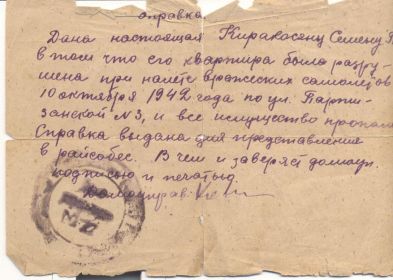 справка
Дана настоящая Киракосянц Семену
в том что его квартира была разру-
шена при налете вражеских самолетов
10 октября 1942 года по ул. Парти-
занской №3, и все имущество пропало
Справка выдана для представления
в райсобес. В чем и заверяет домоуп.
подписью и печатью
Домоуправ.